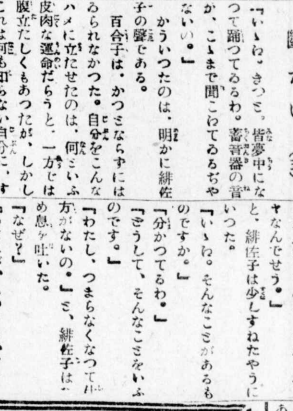 『いゝわ。きつと。皆夢中にな
つて踊つてるわ。蓄音器の音
か、こゝまで聞こわてるぢや
ないの。』
かういつたのは、明かに緋佐
子の聲である。
百合子は、かつとならずには
ゐられなかつた。自分をこんな
ハメに立たせたのは、何といふ
皮肉な運命だらうと、一方では
腹立たしくもあつたが、しかし
これは何も知らない自分に、す
ヤなんでせう。』
と、緋佐子は少しすねたやうに
いつた。
『いゝね。そんなことがあるも
のですか。』
『分かつてるわ。』
『どうして、そんなことをいふ
のです。』
『わたし、つまらなくなつて
方がないの。』と、緋佐子は
め息を吐いた。
『なぜ？』